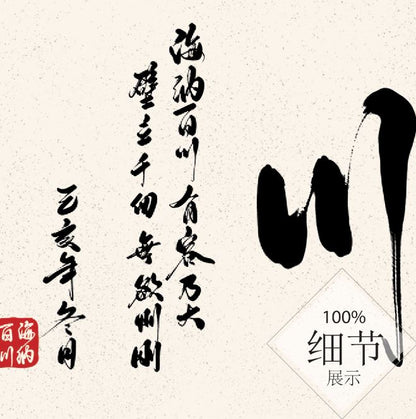 川
海纳百川有容乃大
壁立千仞无欲则刚
己亥年冬月
海纳百川
100%
细节
展示